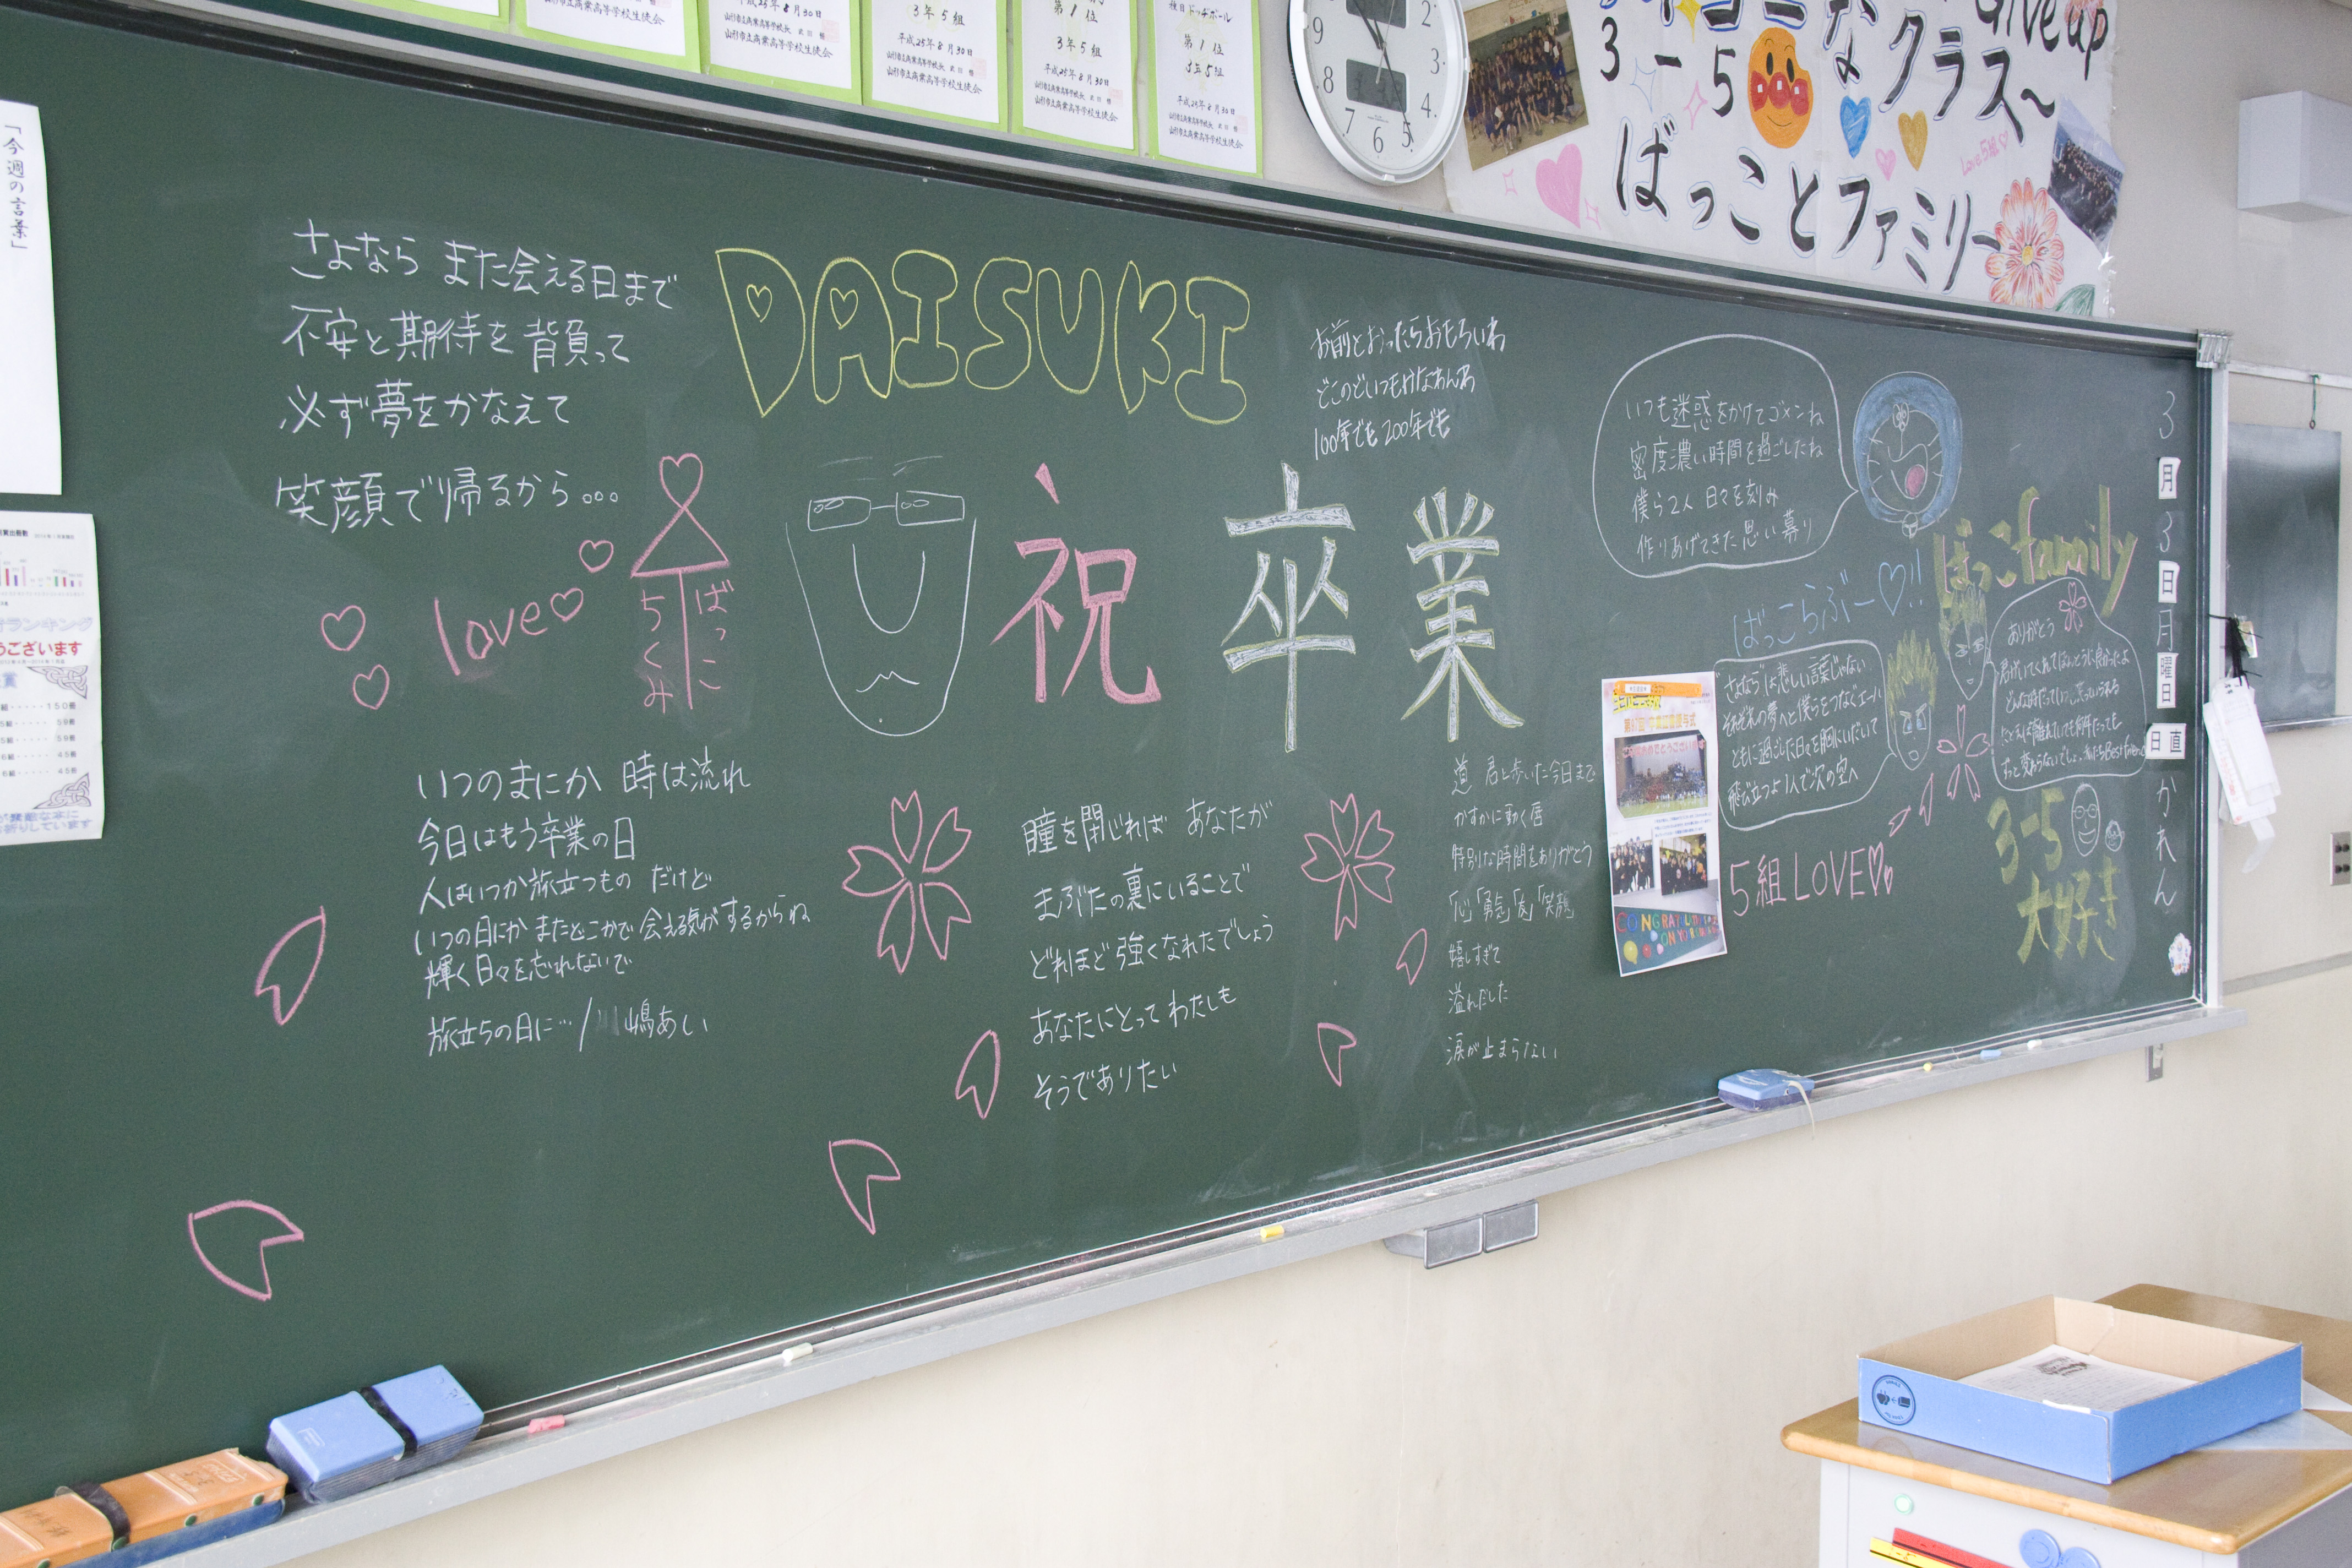 「今週の言葉」
うございます
山形市立商業高等学校生徒会
平成25年8月30日
山形市立商業高等学校生徒会
3年5組
平成25年8月30日
山形市立商業高等学校生徒会
第1位
3年5組
平成25年8月30日
山形市立商業高等学校生徒会
種目 ドッヂボール
第1位
3年5組
平成25年8月30日
山形市立商業高等学校生徒会
9
8
7
6
5
4
3
2
Give up
なクラス〜
3-5
ばっことファミリー
Love 5組
さよなら また会える日まで
不安と期待を背負って
必ず夢をかなえて
笑顔で帰るから...
love
ばっこ
ちくみ
DAISUKI
祝 卒業
お前とおったらおもろいわ
100年でも 200年でも
いつも迷惑をかけてゴメンね
密度濃い時間を過ごしたね
僕ら2人 日々を刻み
作りあげてきた思い募り
ばっこらぶー♡!!
ばっこfamily
さよならは悲しい言葉じゃない
それぞれの夢へと僕らをつなぐエール
ともに過ごした日々を胸にいだいて
飛び立つよ1人で次の空へ
ありがとう
君がいてくれてほんとうに良かったよ
どんな時だっていつも笑っていられる
たとえば離れていても何年たっても
ずっと変わらないでしょ、私たちBest friend
いつのまにか 時は流れ
今日はもう卒業の日
人はいつか旅立つもの だけど
いつの日にか またどこかで 会える気がするからね
輝く日々を忘れないで
旅立ちの日に…/川嶋あい
瞳を閉じれば あなたが
まぶたの裏にいることで
どれほど強くなれたでしょう
あなたにとって わたしも
そうでありたい
道 君と歩いた今日まで
かすかに動く唇
特別な時間をありがとう
「心」「勇気」「友」「笑顔」
嬉しすぎて
溢れだした
涙が止まらない
5組 LOVE
3-5
大好き
3月3日月曜日
日直
かれん